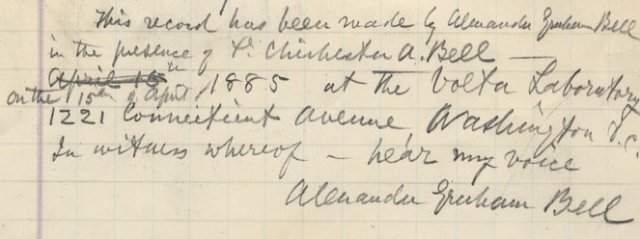 This record has been made by Alexander Graham Bell
in the presence of Dr. Chichester A. Bell —
April 15th
on the 15th of April, 1885 at the Volta Laboratory
1221 Connecticut Avenue, Washington D.C.
In witness whereof — hear my voice
Alexander Graham Bell